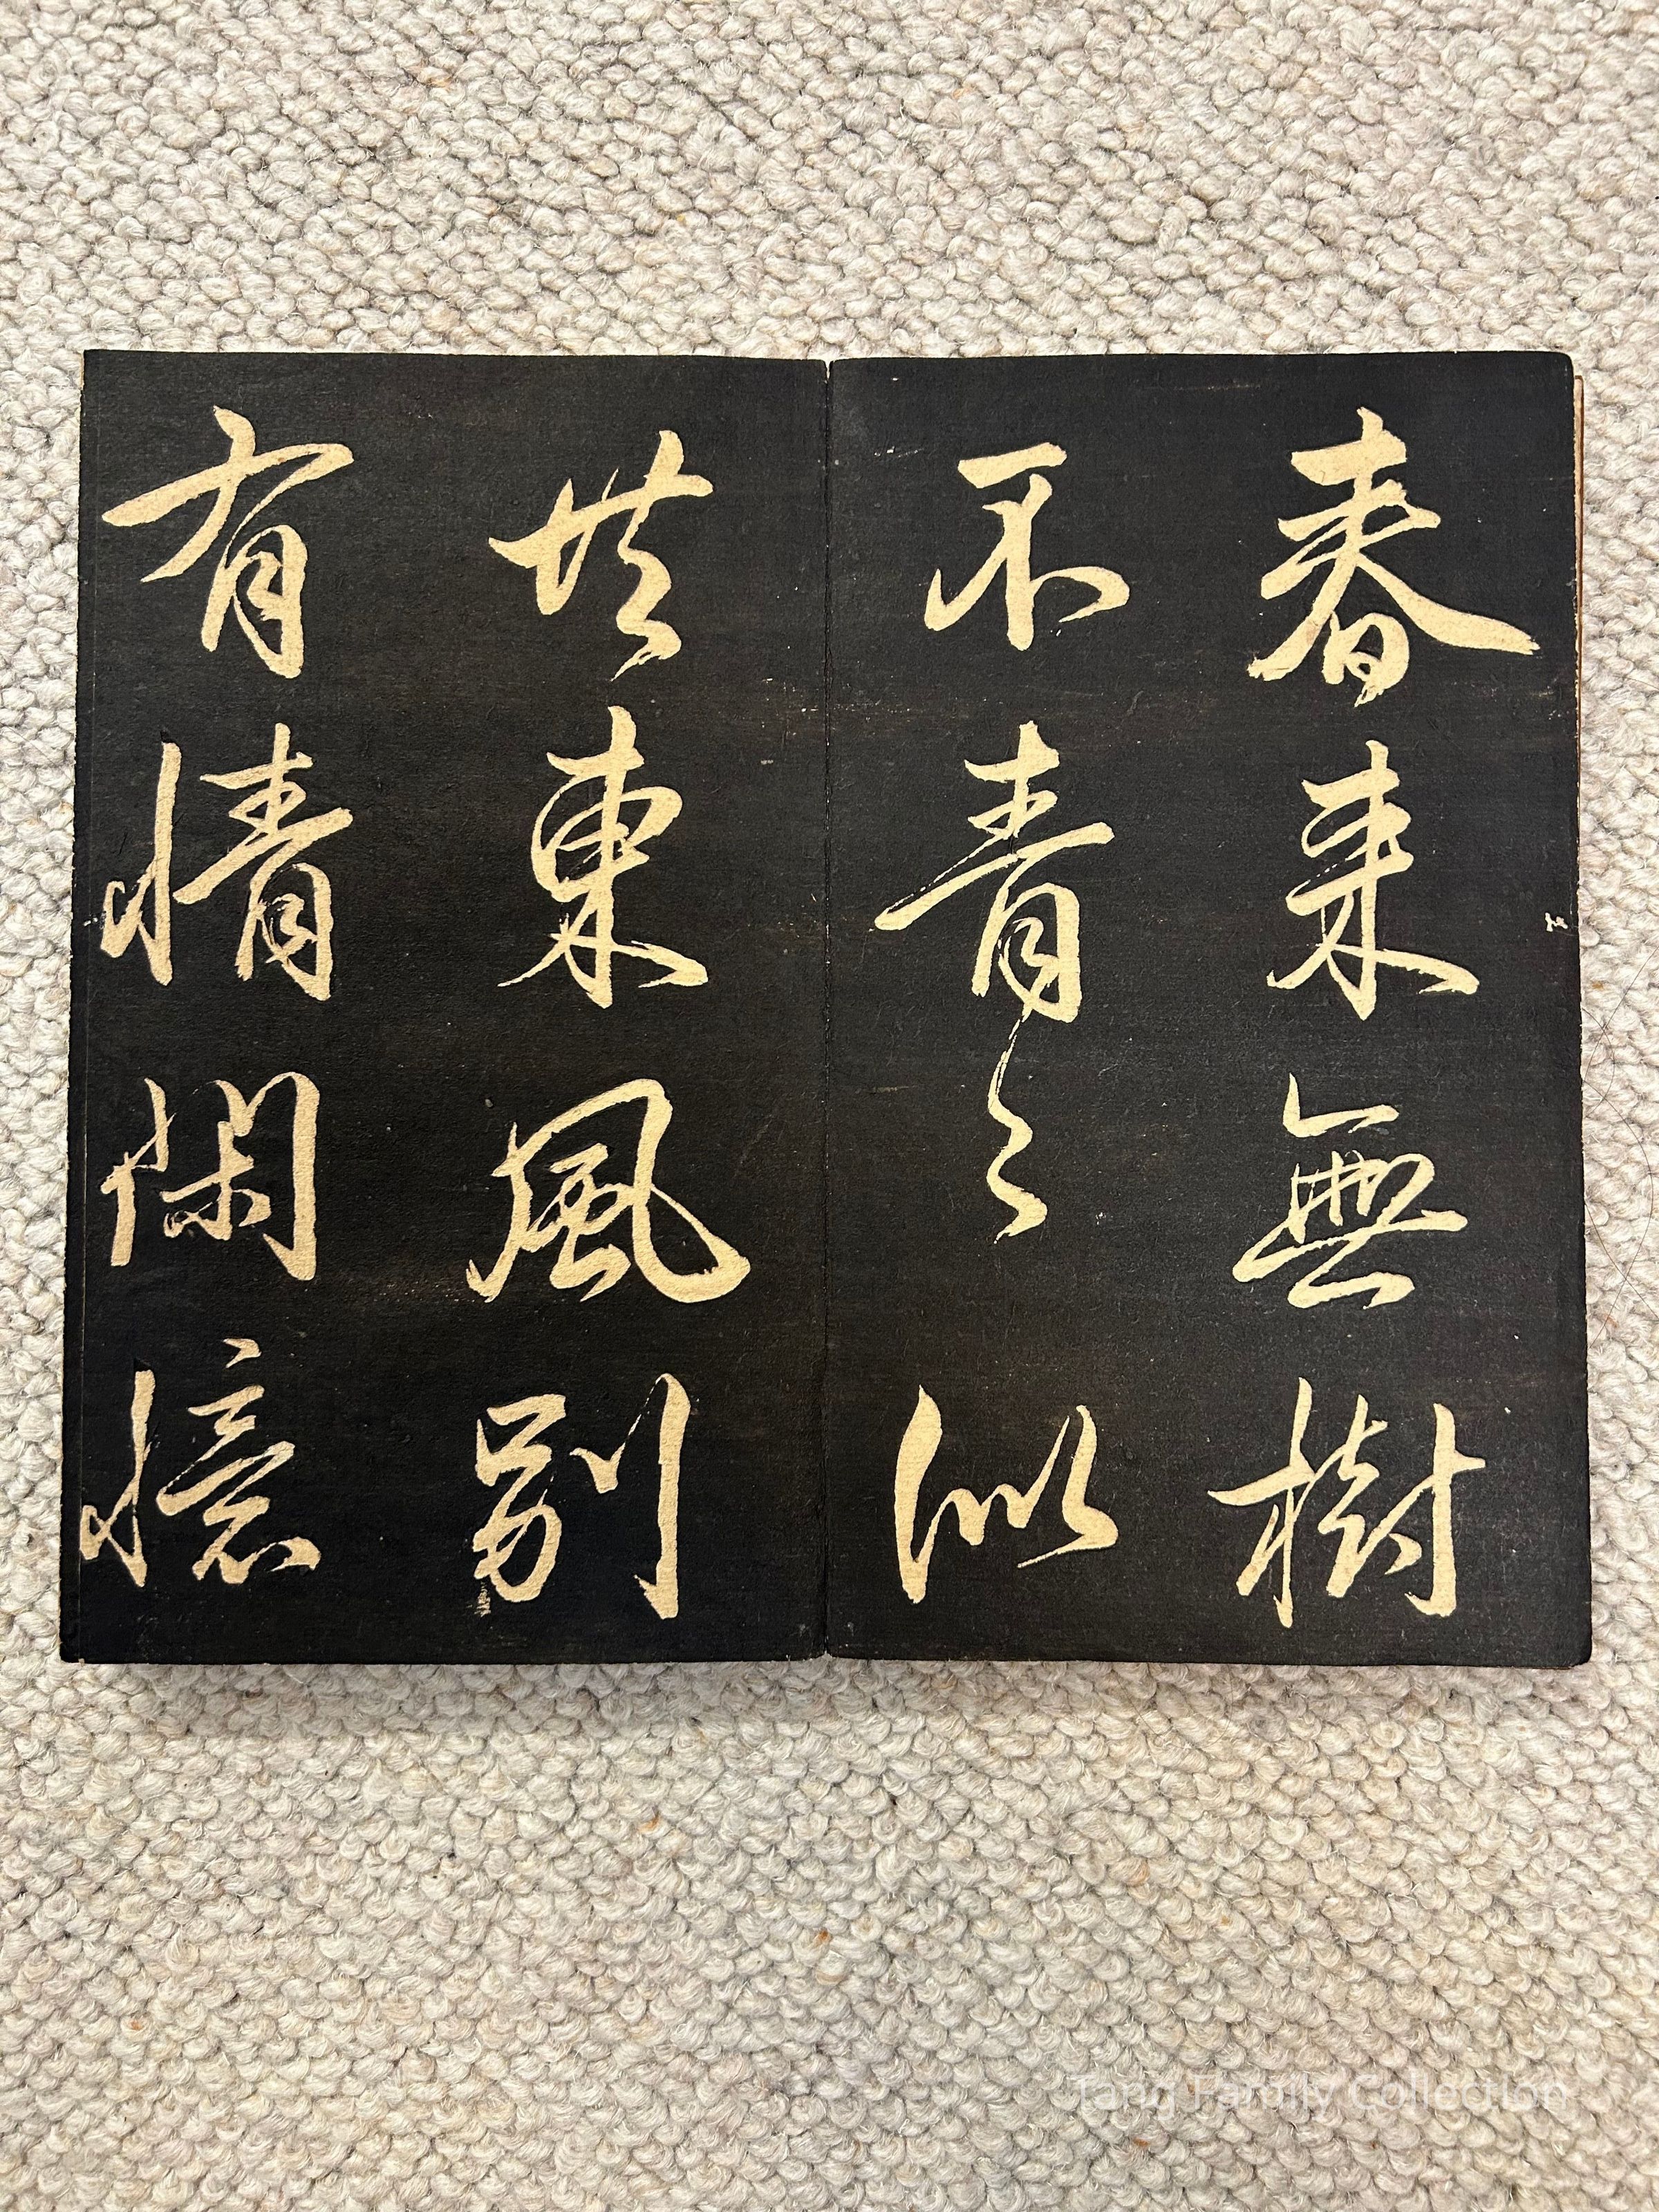 春來無樹
不青々似
共東風別
有情閑憶
Tang Family Collection